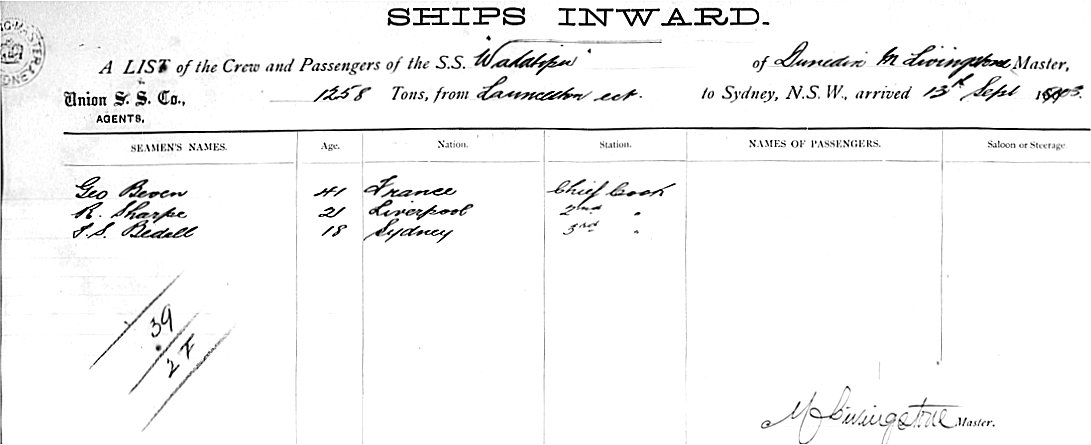 SHIPS INWARD.
A LIST of the Crew and Passengers of the S.S. "Wakatipu" of Dunedin M Livingstone Master,
Union S. S. Co., 1258 Tons, from Launceston ect. to Sydney, N.S.W., arrived 13th Sept
AGENTS.
SEAMEN'S NAMES. Age. Nation. Station. NAMES OF PASSENGERS. Saloon or Steerage
Geo Beven 41 France Chief Cook
R. Sharpe 21 Liverpool 2nd "
S. Bedall 18 Sydney 3rd "
39
2 F
M Livingstone Master.